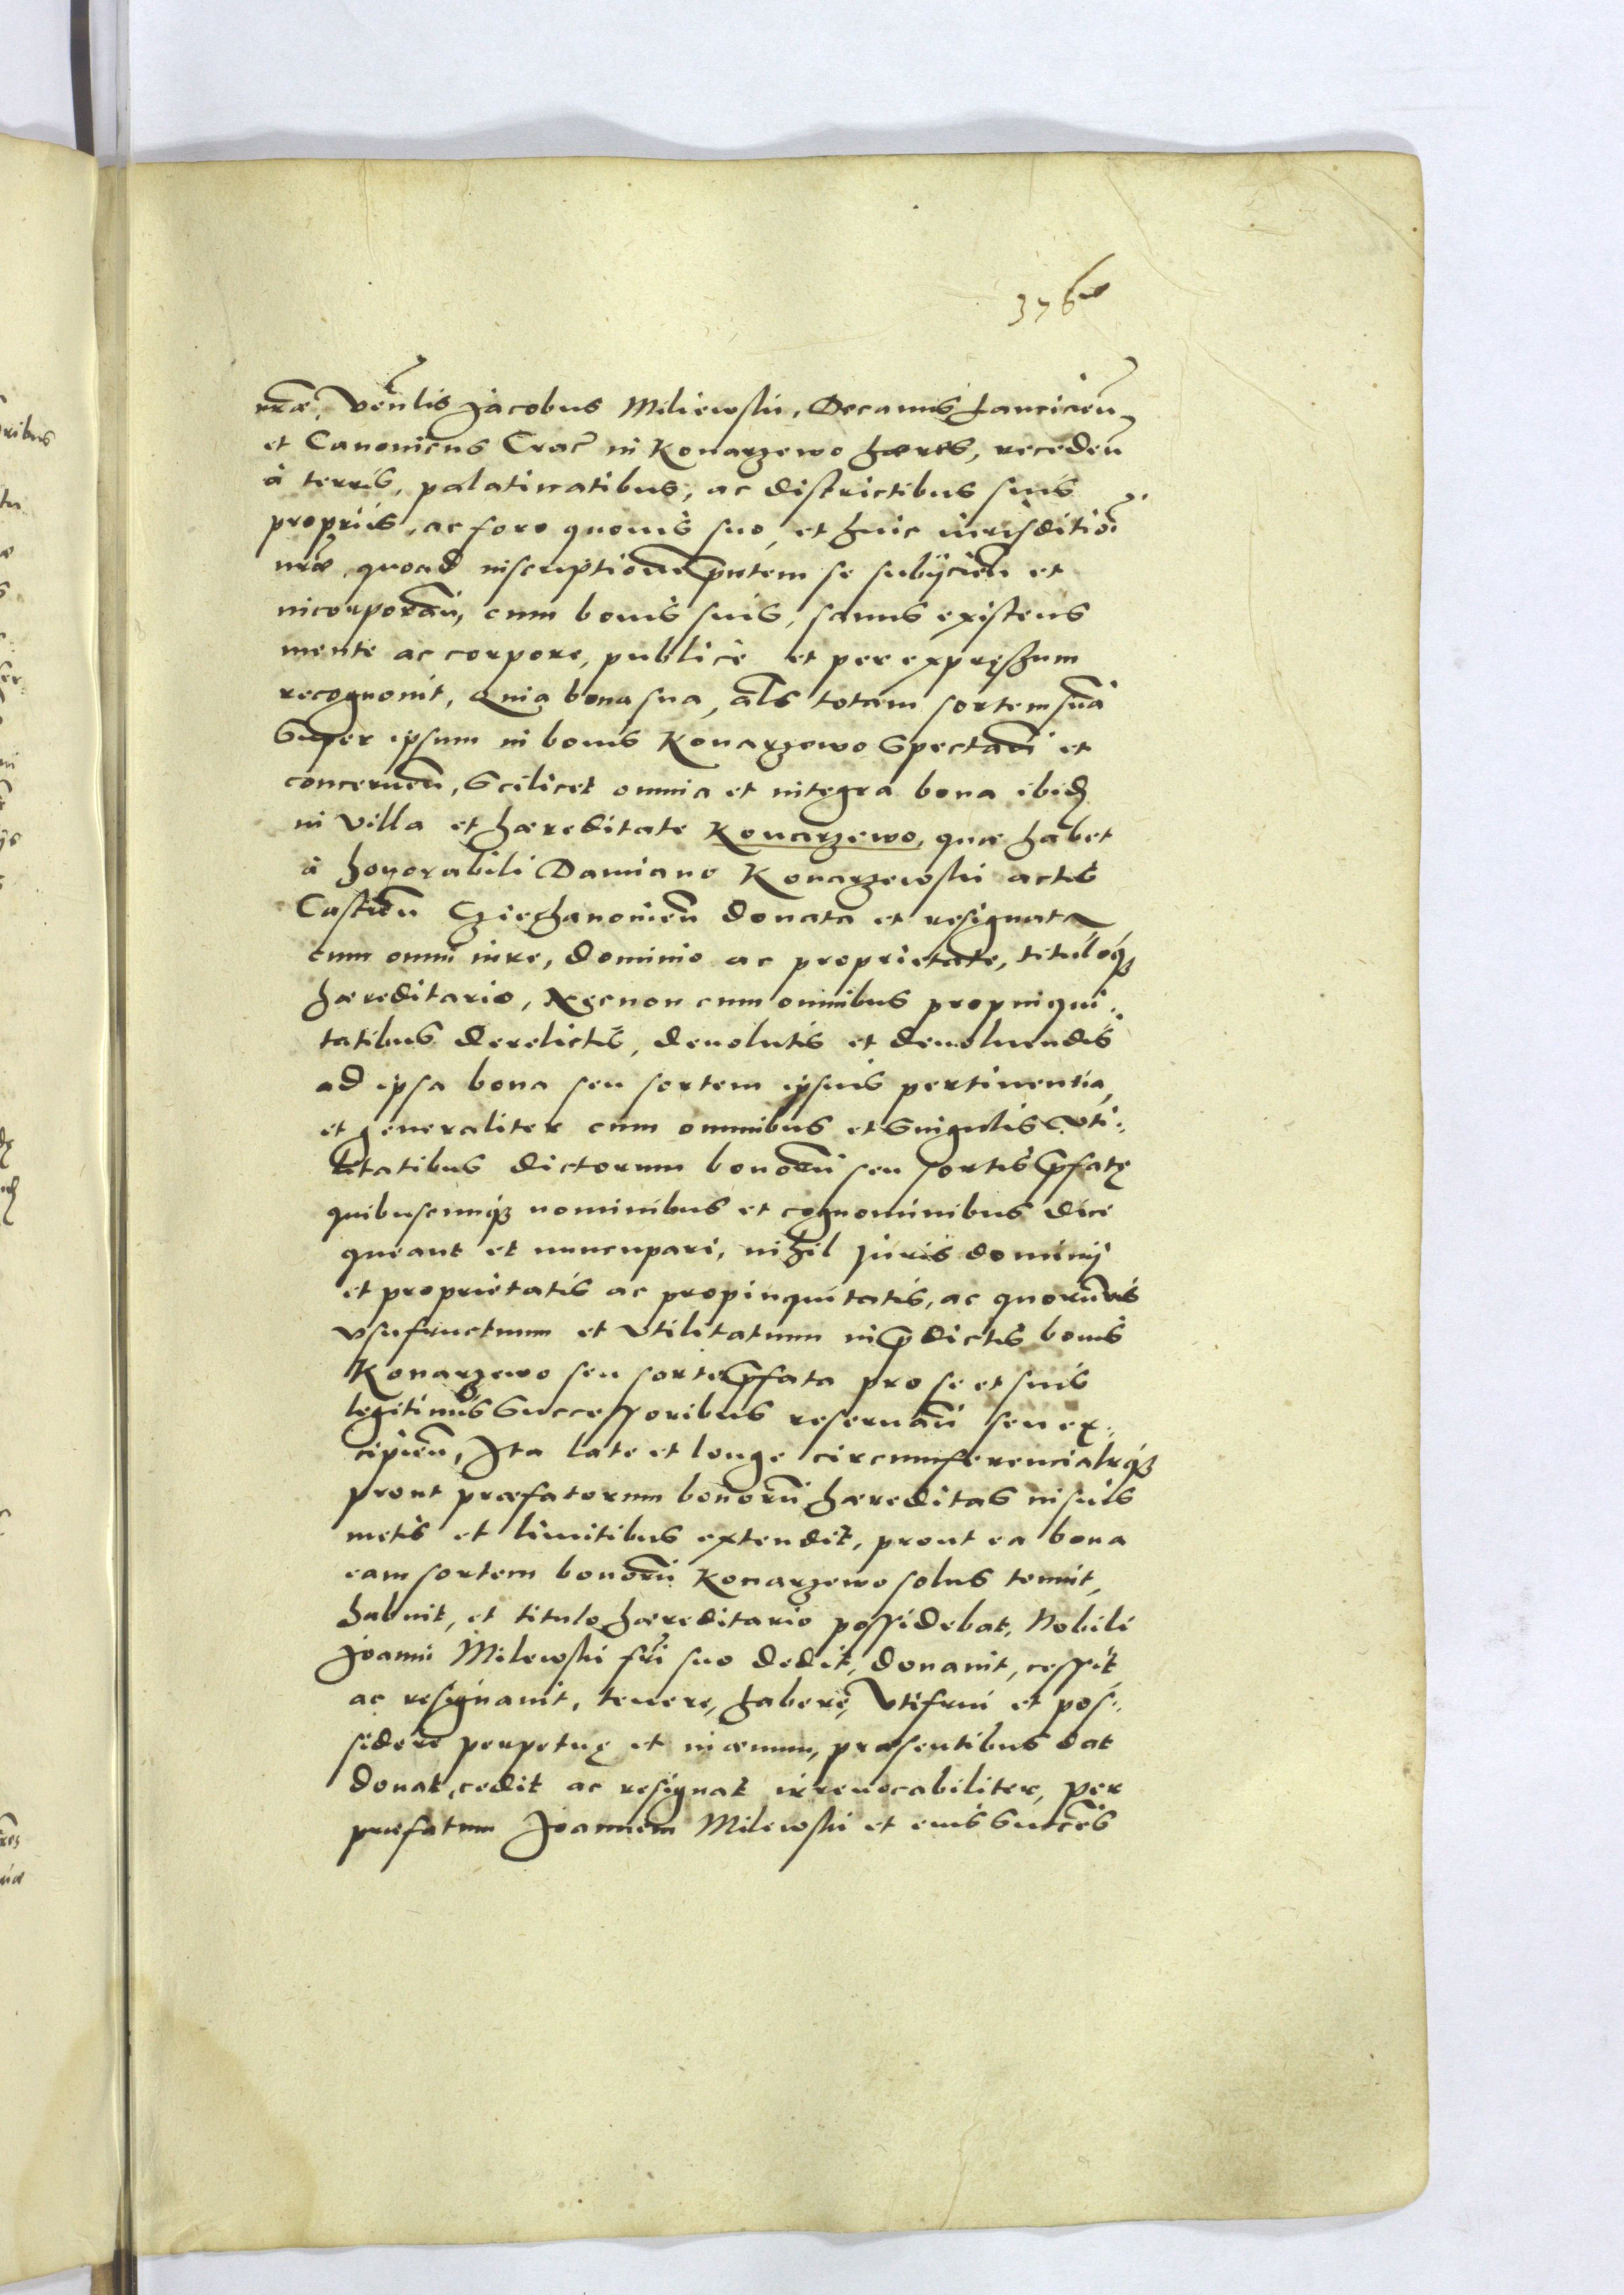 376
nr̃æ, Veñlis Jacobus Miliewski, Decanus Lancicieñ
et Canonicus Crac̃ in Konarzewo hæres, recedeñ
à terris, palatinatibus, ac districtibus suis
propriis, ac foro quovis suo, et huic iurisditioĩ
nr̃æ, quoad inscriptionẽ p̃ntem se subijcieñ et
incorporañ, cum bonis suis, sanus existens
mente ac corpore, publicè et per expreßum
recognouit, Quia bona sua, al̃s totam sortem suã
Super ipsum in bonis Konarzewo Spectañ et
concerneñ, Scilicet omnia et integra bona ibid
in villa et hæreditate Konarzewo, quæ habet
à honorabili Damiano Konarzewski actis
Castreñ Cziechanouieñ donata et resignata
cum omni iure, dominio ac proprietate, tituloq3
hæreditario, Necnon cum omnibus propinqui-
tatibus derelictis, deuolutis et deuoluendis
ad ipsa bona seu sortem ipsius pertinentia,
et generaliter cum omnibus et Singulis vti-
litatibus dictorum bonorũ seu sortis p̃fatę
quibuscunq3 nominibus et cognominibus dici
queant et nuncupari, nihil Juris dominij
et proprietatis ac propinquitatis, ac quorũvis
vsufructuum et vtilitatum in p̃dictis bonis
Konarzewo seu sorte p̃fata pro se et suis
legitimis Successoribus reseruañ seu ex-
cipieñ, Ita late et longe circumferencialrq3
prout præfatorum bonorũ hæreditas in suis
metis et limitibus extendit, prout ea bona
eam sortem bonorũ Konarzewo solus tenuit,
habuit, et titulo hæreditario possidebat, Nobili
Joanni Milewski fr̃i suo dedit, donauit, cessit
ac resignauit, tenere, habere, vtifrui et pos-
sidere perpetuę et in æuum, præsentibus dat
donat, cedit ac resignat irreuocabiliter, per
præfatum Joannem Milewski et eius Succes̃